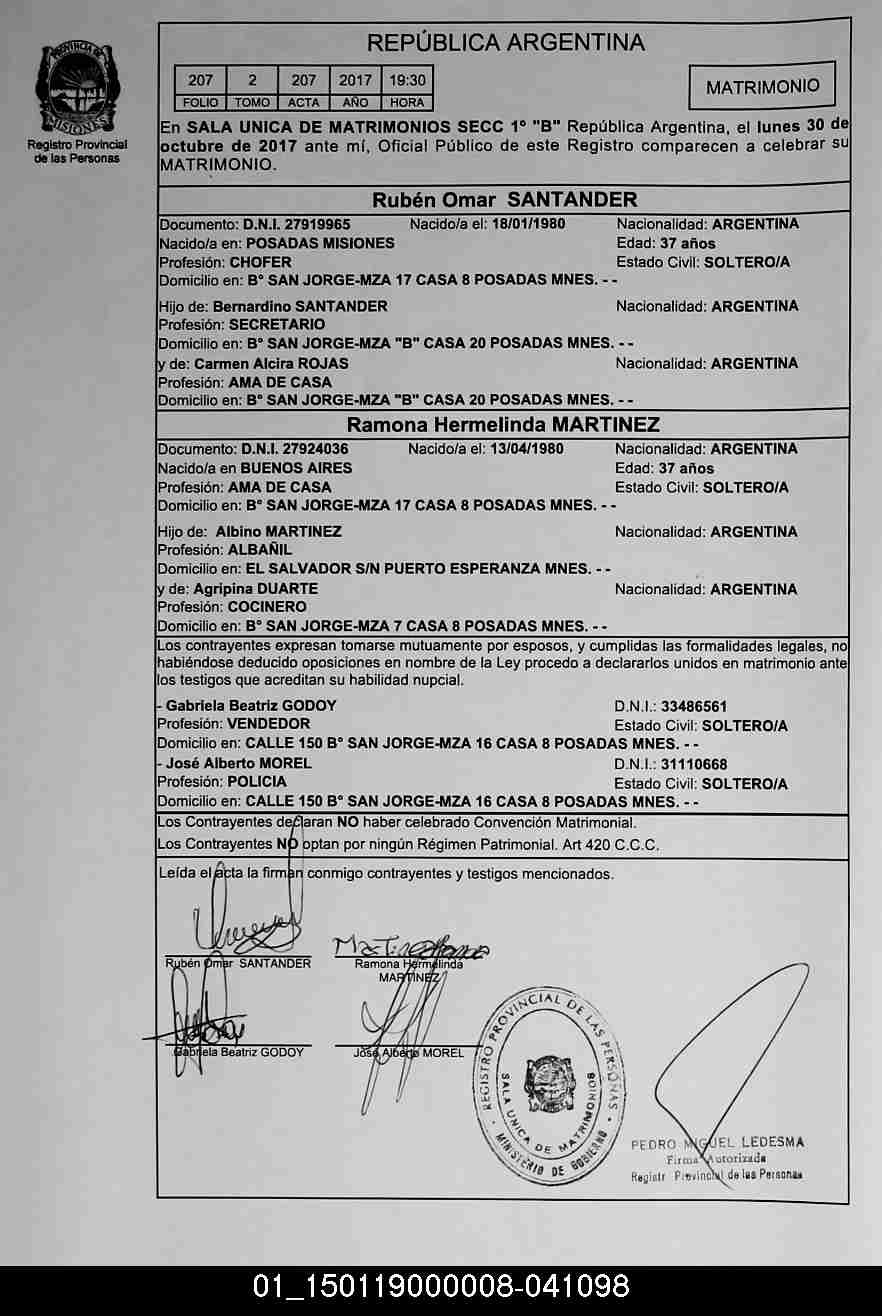 REPÚBLICA ARGENTINA
PROVINCIA DE
MISIONES
Registro Provincial
de las Personas
207 2 207 2017 19:30
FOLIO TOMO ACTA AÑO HORA
MATRIMONIO
En SALA UNICA DE MATRIMONIOS SECC 1º "B" República Argentina, el lunes 30 de
octubre de 2017 ante mí, Oficial Público de este Registro comparecen a celebrar su
MATRIMONIO.
Rubén Omar SANTANDER
Documento: D.N.I. 27919965 Nacido/a el: 18/01/1980 Nacionalidad: ARGENTINA
Nacido/a en: POSADAS MISIONES Edad: 37 años
Profesión: CHOFER Estado Civil: SOLTERO/A
Domicilio en: B° SAN JORGE-MZA 17 CASA 8 POSADAS MNES. - -
Hijo de: Bernardino SANTANDER Nacionalidad: ARGENTINA
Profesión: SECRETARIO
Domicilio en: B° SAN JORGE-MZA "B" CASA 20 POSADAS MNES. - -
y de: Carmen Alcira ROJAS Nacionalidad: ARGENTINA
Profesión: AMA DE CASA
Domicilio en: B° SAN JORGE-MZA "B" CASA 20 POSADAS MNES. - -
Ramona Hermelinda MARTINEZ
Documento: D.N.I. 27924036 Nacido/a el: 13/04/1980 Nacionalidad: ARGENTINA
Nacido/a en BUENOS AIRES Edad: 37 años
Profesión: AMA DE CASA Estado Civil: SOLTERO/A
Domicilio en: B° SAN JORGE-MZA 17 CASA 8 POSADAS MNES. - -
Hijo de: Albino MARTINEZ Nacionalidad: ARGENTINA
Profesión: ALBAÑIL
Domicilio en: EL SALVADOR S/N PUERTO ESPERANZA MNES. - -
y de: Agripina DUARTE Nacionalidad: ARGENTINA
Profesión: COCINERO
Domicilio en: B° SAN JORGE-MZA 7 CASA 8 POSADAS MNES. - -
Los contrayentes expresan tomarse mutuamente por esposos, y cumplidas las formalidades legales, no
habiéndose deducido oposiciones en nombre de la Ley procedo a declararlos unidos en matrimonio ante
los testigos que acreditan su habilidad nupcial.
- Gabriela Beatriz GODOY D.N.I.: 33486561
Profesión: VENDEDOR Estado Civil: SOLTERO/A
Domicilio en: CALLE 150 B° SAN JORGE-MZA 16 CASA 8 POSADAS MNES. - -
- José Alberto MOREL D.N.I.: 31110668
Profesión: POLICIA Estado Civil: SOLTERO/A
Domicilio en: CALLE 150 B° SAN JORGE-MZA 16 CASA 8 POSADAS MNES. - -
Los Contrayentes declaran NO haber celebrado Convención Matrimonial.
Los Contrayentes NO optan por ningún Régimen Patrimonial. Art 420 C.C.C.
Leída el acta la firman conmigo contrayentes y testigos mencionados.
Rubén Omar SANTANDER
Ramona Hermelinda
MARTINEZ
Gabriela Beatriz GODOY
José Alberto MOREL
REGISTRO PROVINCIAL DE LAS PERSONAS
SALA UNICA DE MATRIMONIOS
MINISTERIO DE GOBIERNO
PEDRO MIGUEL LEDESMA
Firma Autorizada
Registr Provincial de las Personas
01_150119000008-041098